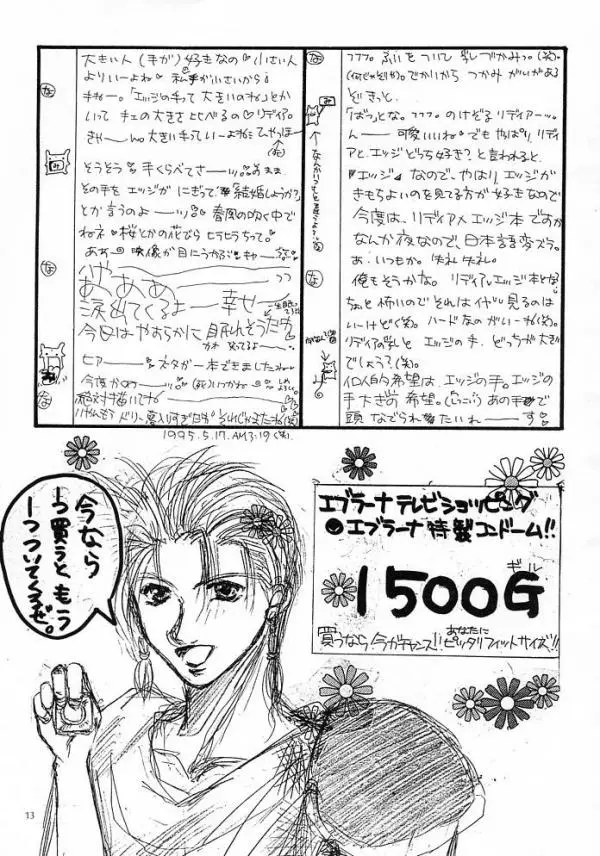 大きい人(手が)好きなの 小さい人
よりいーよね 私手が小さいから
きねー。「エッジの手って大きいのね」とか
いって チェの大きさ比べるの リディア。
きゃーno 大きい手っていーよねにひゃっほー
(死)
そうそう 手くらべてさー… そのまま
その手をエッジがにぎって「結婚しようか?」
とか言うのよー 春風の吹く中で
ねネ 桜とかの花びらヒラヒラちって。
ああー 映像が目にうかぶ キャー
いや
あああー
涙出てくるよー 幸せー
今日はやすらかに眠れそうだわ
ヒアー ネタが一本できましたねー
今度かおうー (死)いつかね
絶対描いてね
1995.5.17.AM3:19 (笑)
フフフ。ふいをついて乳づかみっ。(笑)。
(何じゃそりゃ)。でかいから つかみがいがある
ぞきっと。
「ばっとな。フフフ。のけぞるリディアーッ。
んー 可愛いいね でもやっぱり、リディ
アと、エッジどっち好き?と言われると、
『エッジ』なので、やはり、エッジが
きもちよいのを見てる方が好きなので
今度は、リディア人エッジ本ですか
なんか夜なので、日本語変ズラ。
あ、いつもか。失礼失礼。
俺もそうかな。リディア×エッジ本とか
ちょと怖いのでそれはイヤ 見るのは
いーけど(笑)。ハードなのがいーな(笑)。
リディアの乳とエッジの手、どっちが大きい
でしょう?(笑)。
個人的希望は、エッジの手。エッジの
手大きめ希望。(しつこい)あの手で
頭なでられたいねーーす
な
な
な
な
な
今なら
一つ買うともう
一つついてくるぜ。
エブラーナテレビショッピング
●エブラーナ特製コンドーム!!
ギル
1500G
あなたに
買うなら今がチャンス!!ピッタリフィットサイズ!!
13